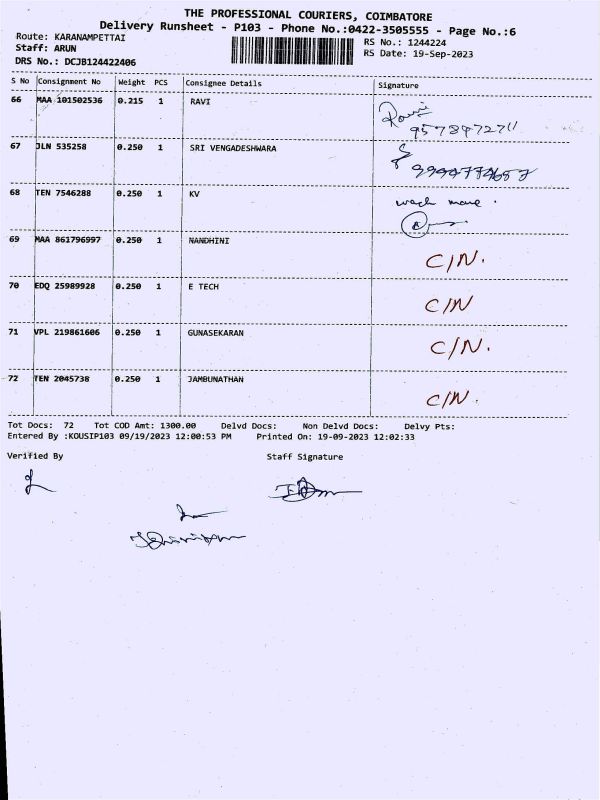 THE PROFESSIONAL COURIERS, COIMBATORE
Delivery Runsheet - P103 - Phone No.:0422-3505555 - Page No.:6
Route: KARANAMPETTAI
RS No.: 1244224
Staff: ARUN
RS Date: 19-Sep-2023
DRS No.: DCJB124422406
S No Consignment No Weight PCS Consignee Details Signature
66 MAA 101502536 0.215 1 RAVI Ravi
9578947271
67 JLN 535258 0.250 1 SRI VENGADESHWARA
68 TEN 7546288 0.250 1 KV
69 MAA 861796997 0.250 1 NANDHINI C/N.
70 EDQ 25989928 0.250 1 E TECH C/N
71 VPL 219861606 0.250 1 GUNASEKARAN C/N.
72 TEN 2045738 0.250 1 JAMBUNATHAN C/N.
Tot Docs: 72 Tot COD Amt: 1300.00 Delvd Docs: Non Delvd Docs: Delvy Pts:
Entered By :KOUSIP103 09/19/2023 12:00:53 PM Printed On: 19-09-2023 12:02:33
Verified By Staff Signature